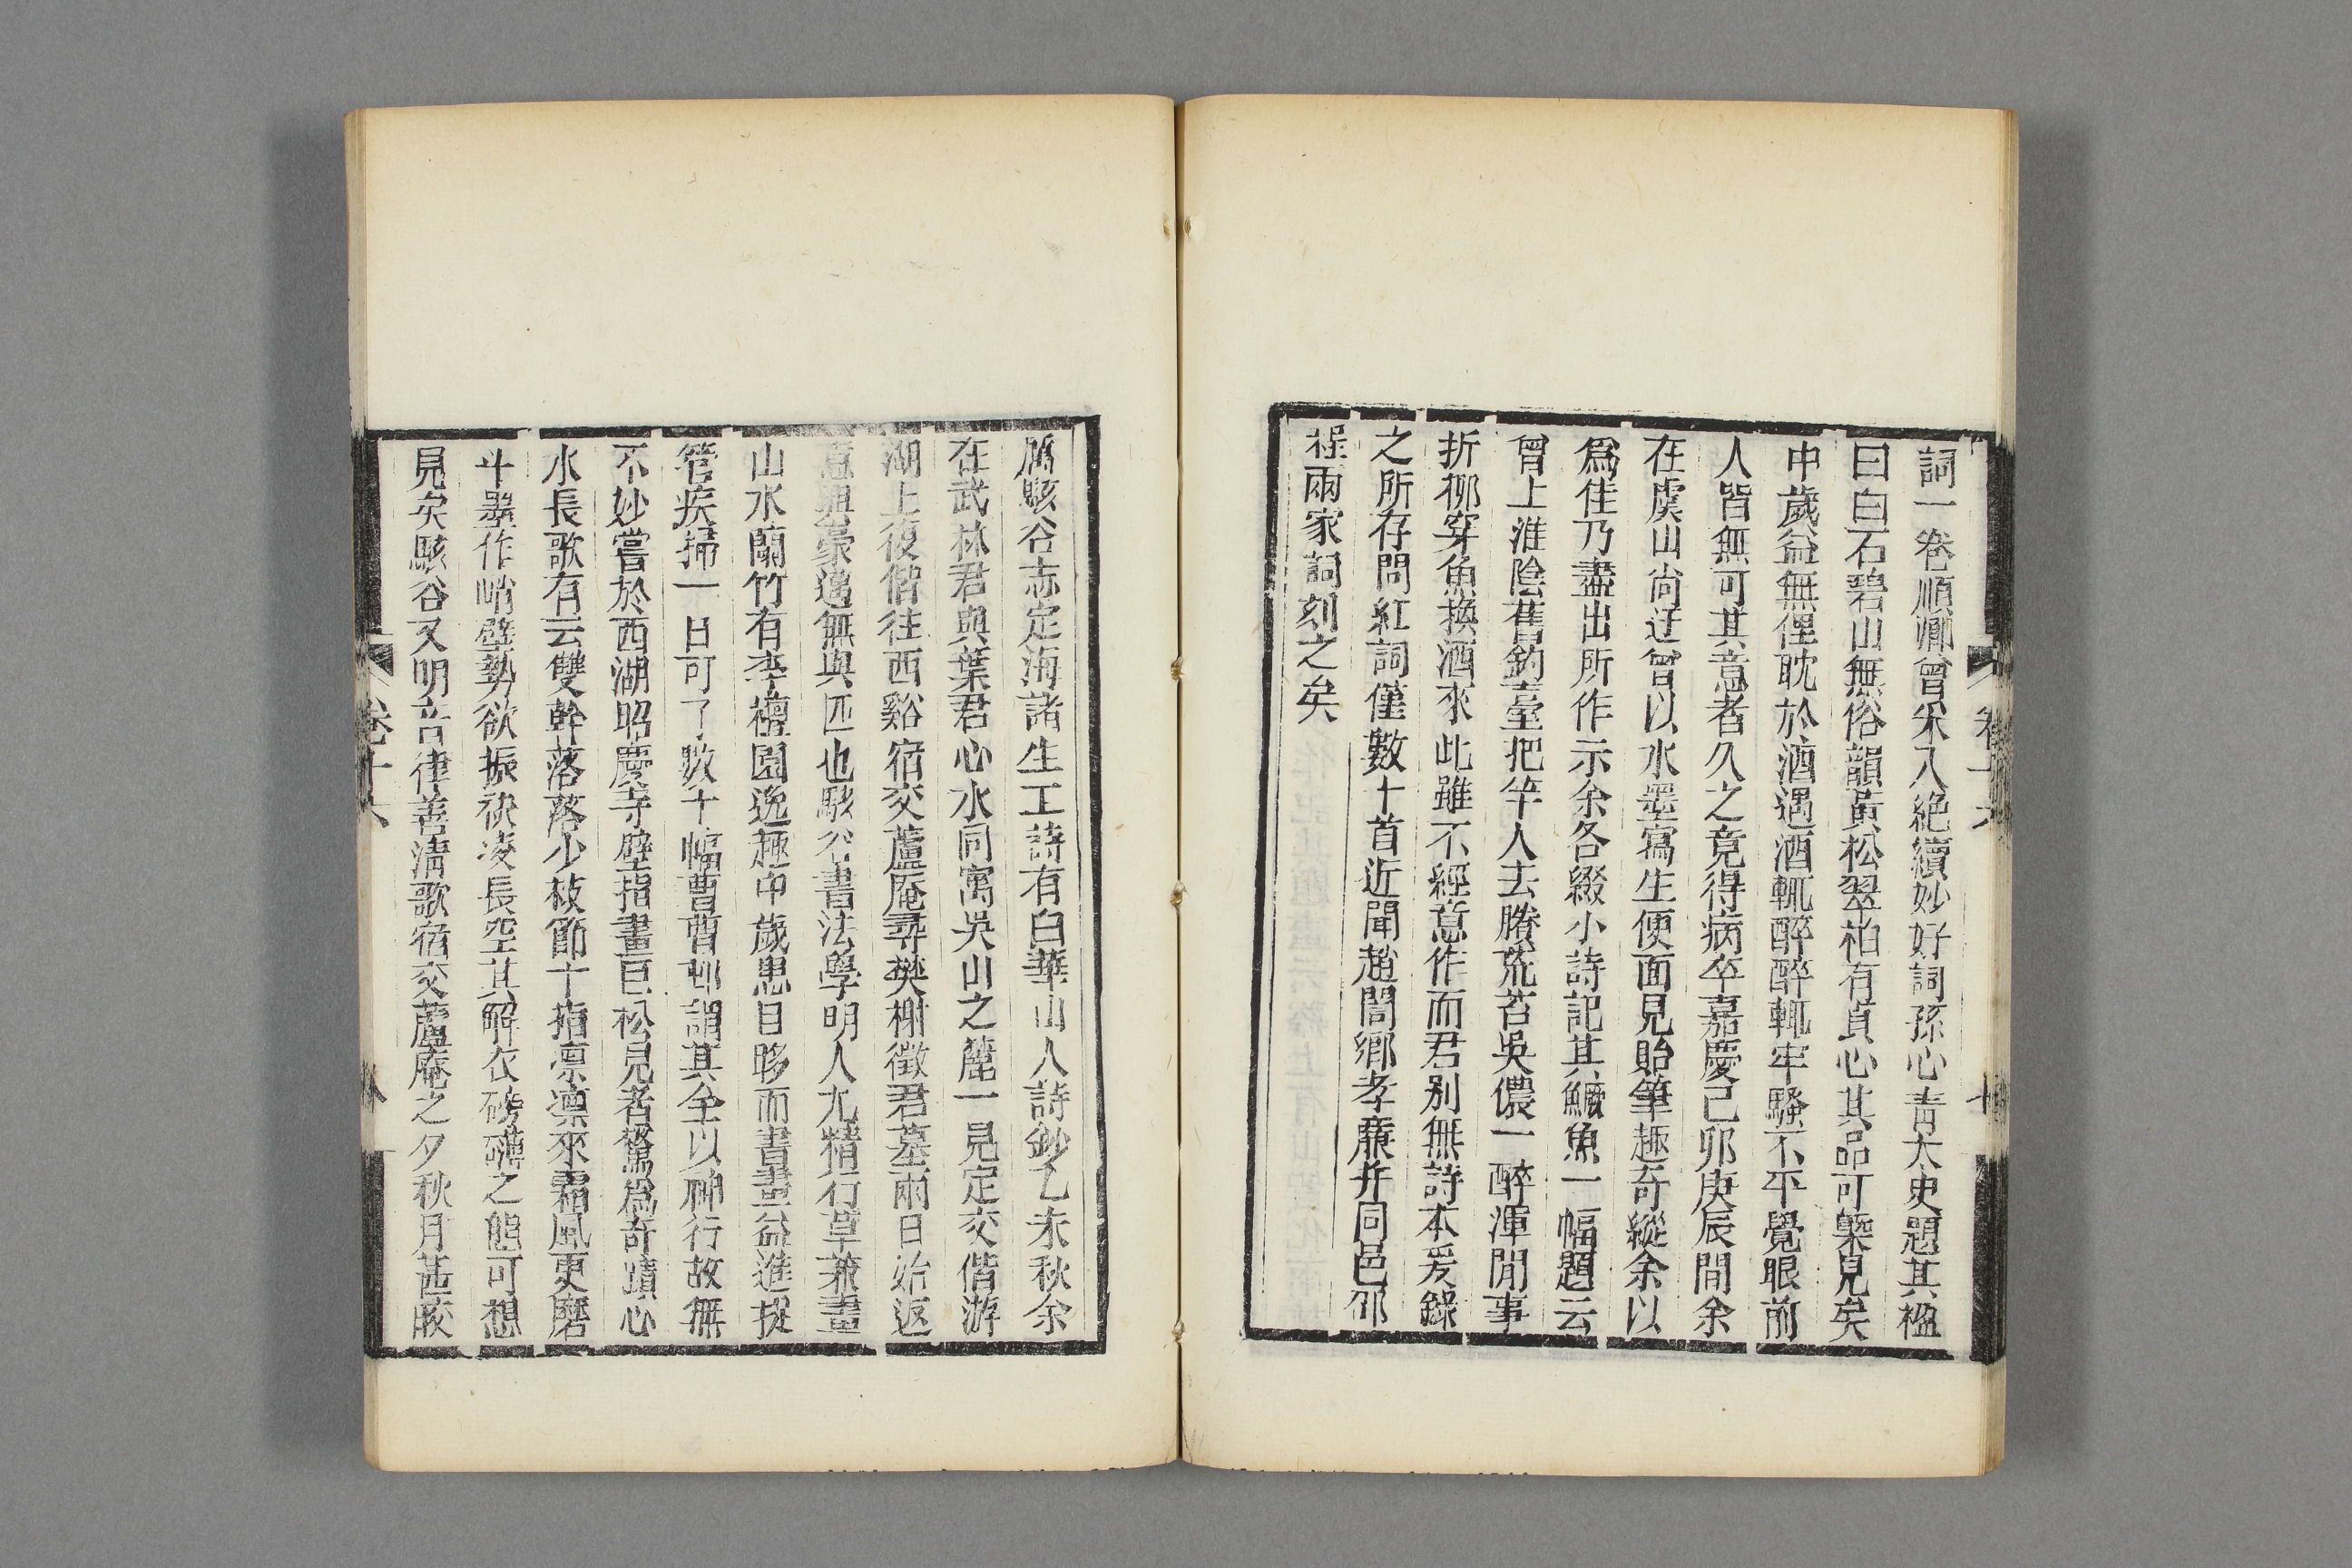 詞一卷順卿曾采入絕續妙好詞孫心青大史題其楹
曰白石碧山無俗韻黃松翠柏有貞心其品可槩見矣
中歲益無俚耽於酒遇酒輒醉醉輒牢騷不平覺眼前
人皆無可其意者久之竟得病卒嘉慶己卯庚辰間余
在虞山尚迂曾以水墨寫生便面見貽筆趣奇縱余以
爲佳乃盡出所作示余各綴小詩記其鱖魚一幅題云
曾上淮陰舊釣臺把竿人去賸荒苔吳儂一醉渾閒事
折柳穿魚換酒來此雖不經意作而君別無詩本爰錄
之所存問紅詞僅數十首近聞趙閬鄉孝廉并同邑邵
程兩家詞刻之矣
厲駭谷志定海諸生工詩有白華山人詩鈔乙未秋余
在武林君與葉君心水同寓吳山之麓一見定交偕游
湖上復偕往西谿宿交蘆庵尋樊榭徵君墓兩日始返
意興豪邁無與匹也駭谷書法學明人尤精行草兼畫
山水蘭竹有李檀園逸趣中歲患目眵而書畫益進捉
管疾掃一日可了數十幅曹曹邨謂其全以神行故無
不妙嘗於西湖昭慶寺壁指畫巨松見者驚爲奇蹟心
水長歌有云雙幹落落少枝節十指凛凛來霜風更磨
斗墨作峭壁勢欲振袂凌長空其解衣磅礴之態可想
見矣駭谷又明音律善淸歌宿交蘆庵之夕秋月甚皎
卷十六
八
卷十六
七